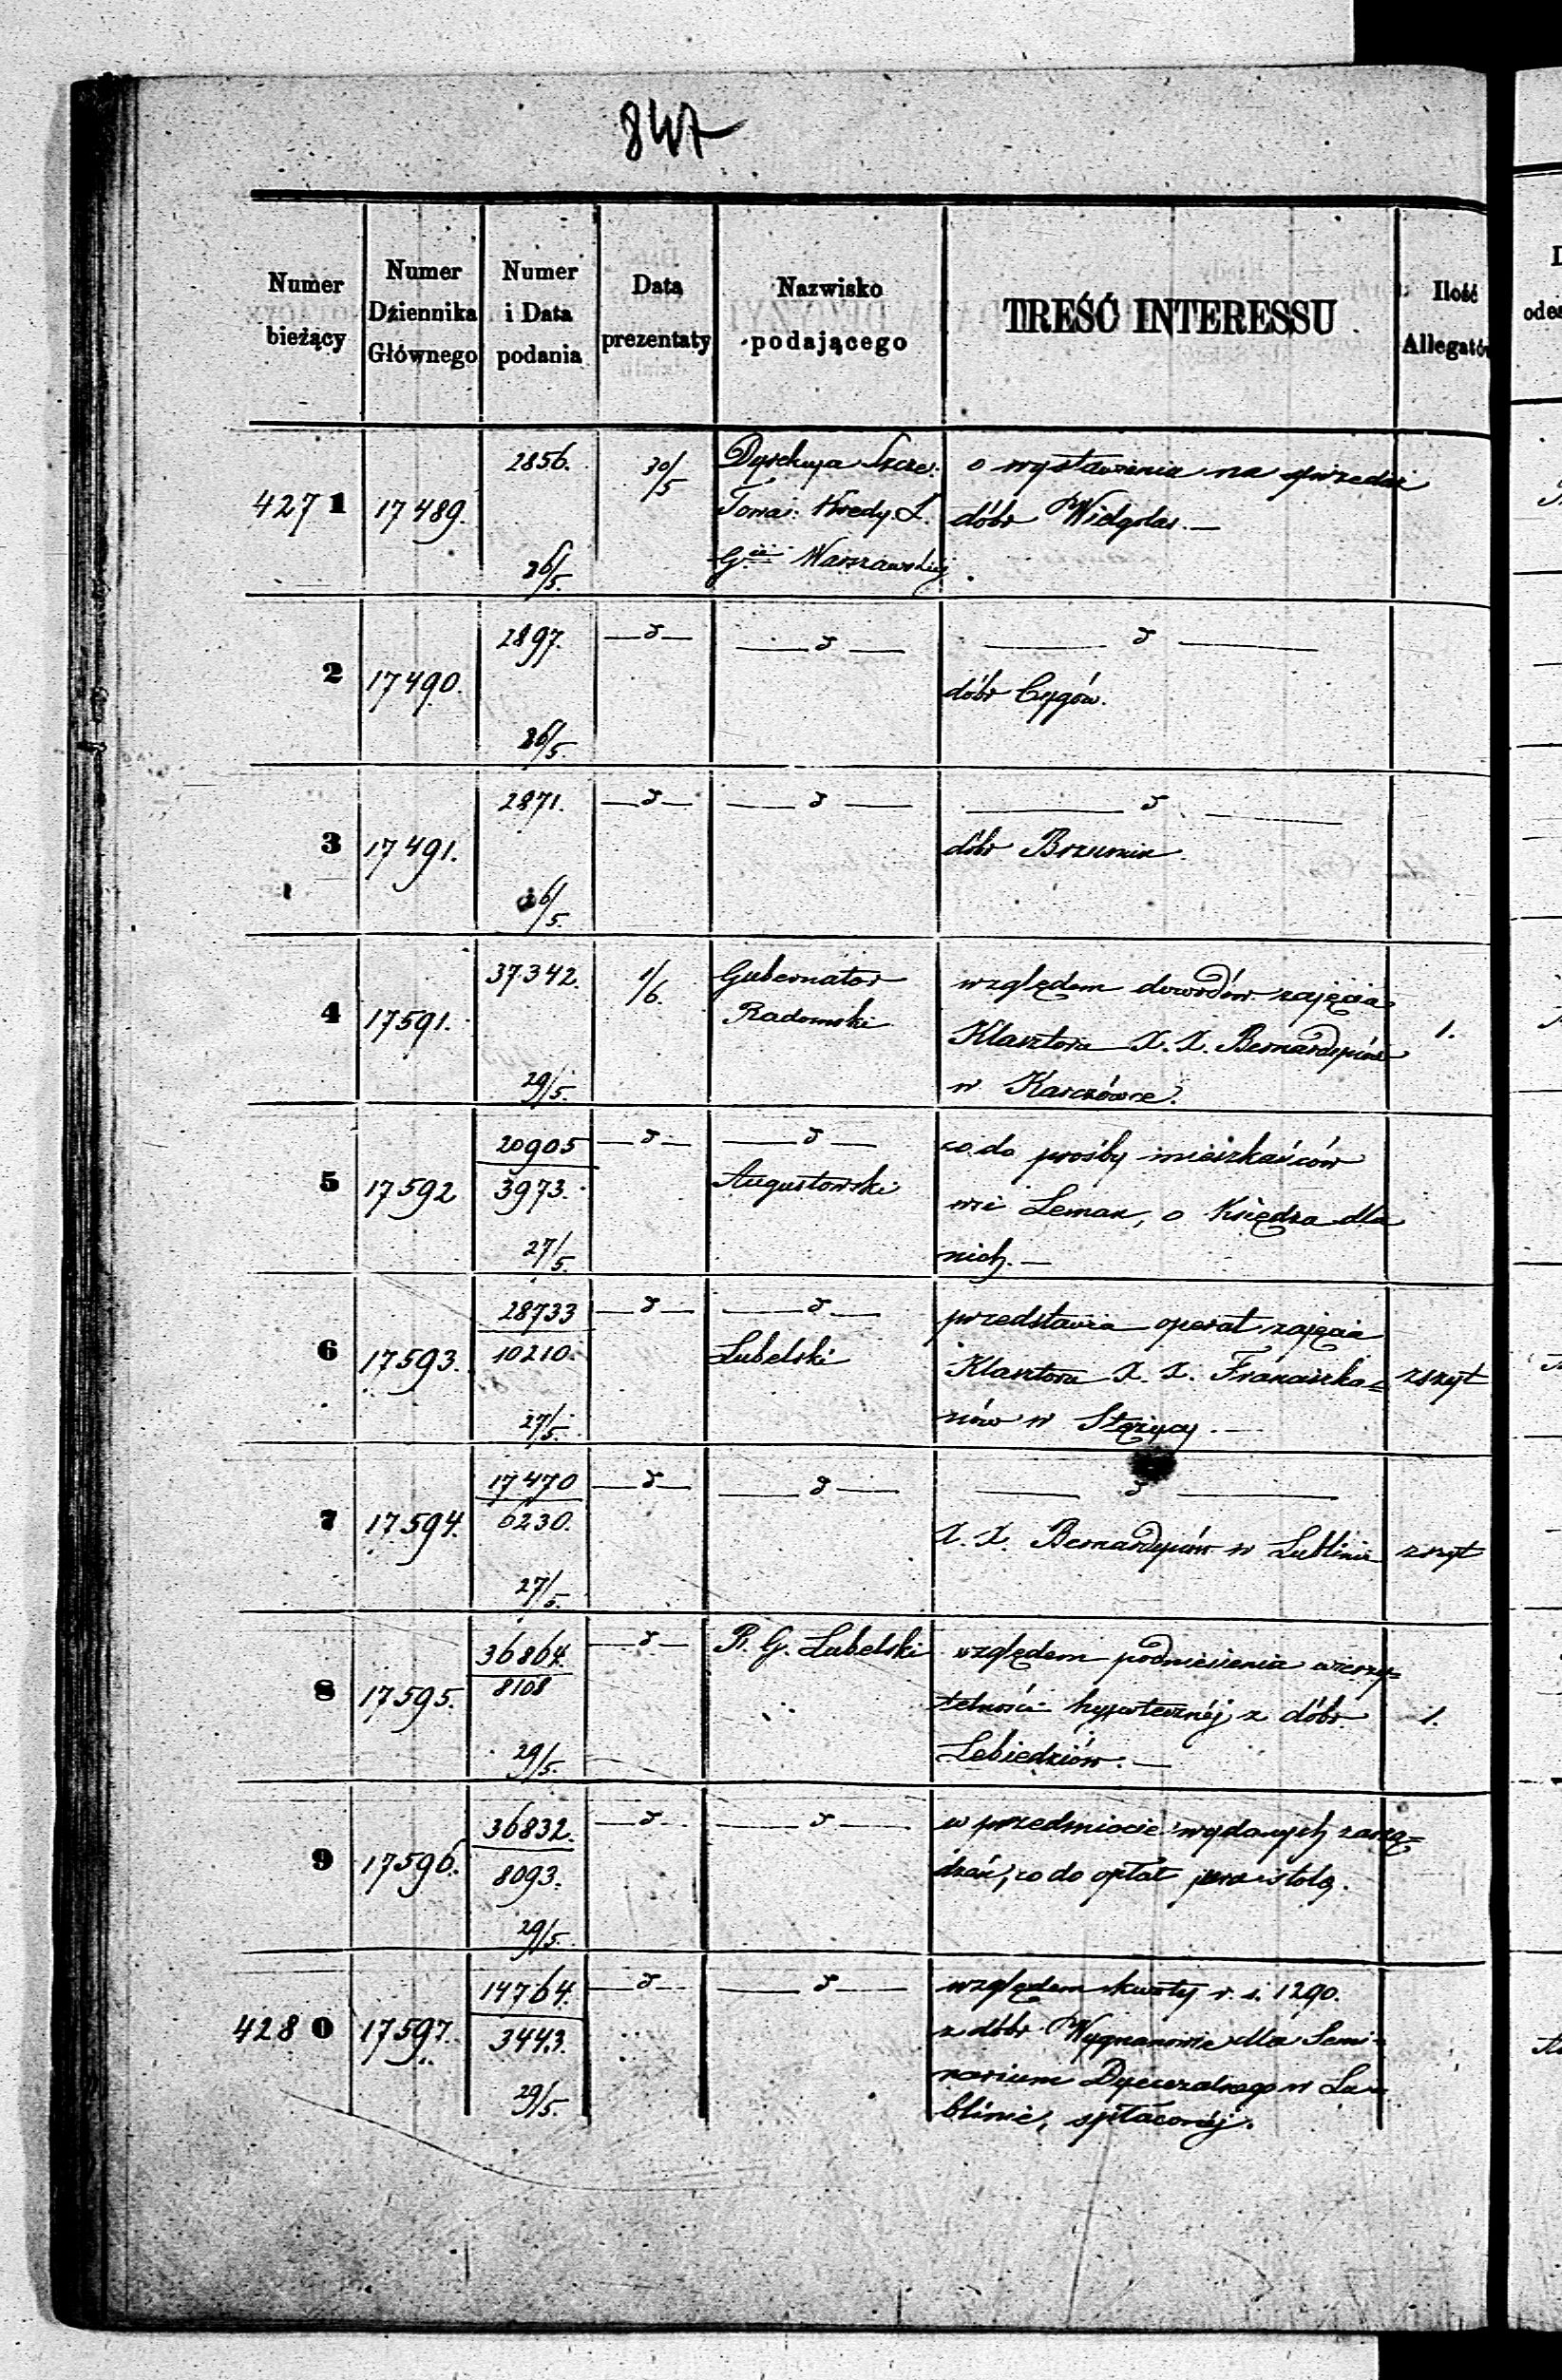 847
Numer bieżący
Numer Dziennika Głównego
Numer i Data podania
Data prezentaty
Nazwisko podającego
TREŚĆ INTERESSU
Ilość Allegatów
4271 17489. 2856. 26/5. 30/5
Dyrekcya Szcze:
Towa: Kredy. Z.
Gii Warszawskiéj
o wystawienia na sprzedaż
dóbr Wielgolas. —
2 17490. 2897. 26/5. — d — — d — — d —
dóbr Cygów.
3 17491. 2871. 26/5. — d — — d — — d —
dóbr Brzumin.
4 17591. 37342. 29/5. 1/6.
Gubernator
Radomski
względem dowodów zajęcia
Klasztora X. X. Bernardynów
w Karczówce.
1.
5 17592 20905 3973. 27/5. — d — — d —
Augustowski
co do prośby mieszkańców
wsi Leman, o Księdza dla
nich. —
6 17593. 28733 10210. 27/5. — d — — d —
Lubelski
przedstawia operat zajęcia
Klasztora X. X. Franciszka=
nów w Stężycy. —
zszyt
7 17594. 17470 6230. 27/5. — d — — d — — d —
X. X. Bernardynów w Lublinie
zszyt
8 17595. 36864. 8108 29/5. — d — R. G. Lubelski
względem podniesienia wierzy=
telności hypotecznéj z dóbr
Lebiedziów. —
1.
9 17596. 36832. 8093. 29/5. — d — — d —
w przedmiocie wydanych zarzą=
dzań, co do opłat jura stolę.
4280 17597. 14764. 3443. 29/5. — d — — d —
względem kwoty r. s. 1290.
z dóbr Wygnanowie dla Semi=
narium Dyecezalnego w Lu=
blinie, spłaconéj.